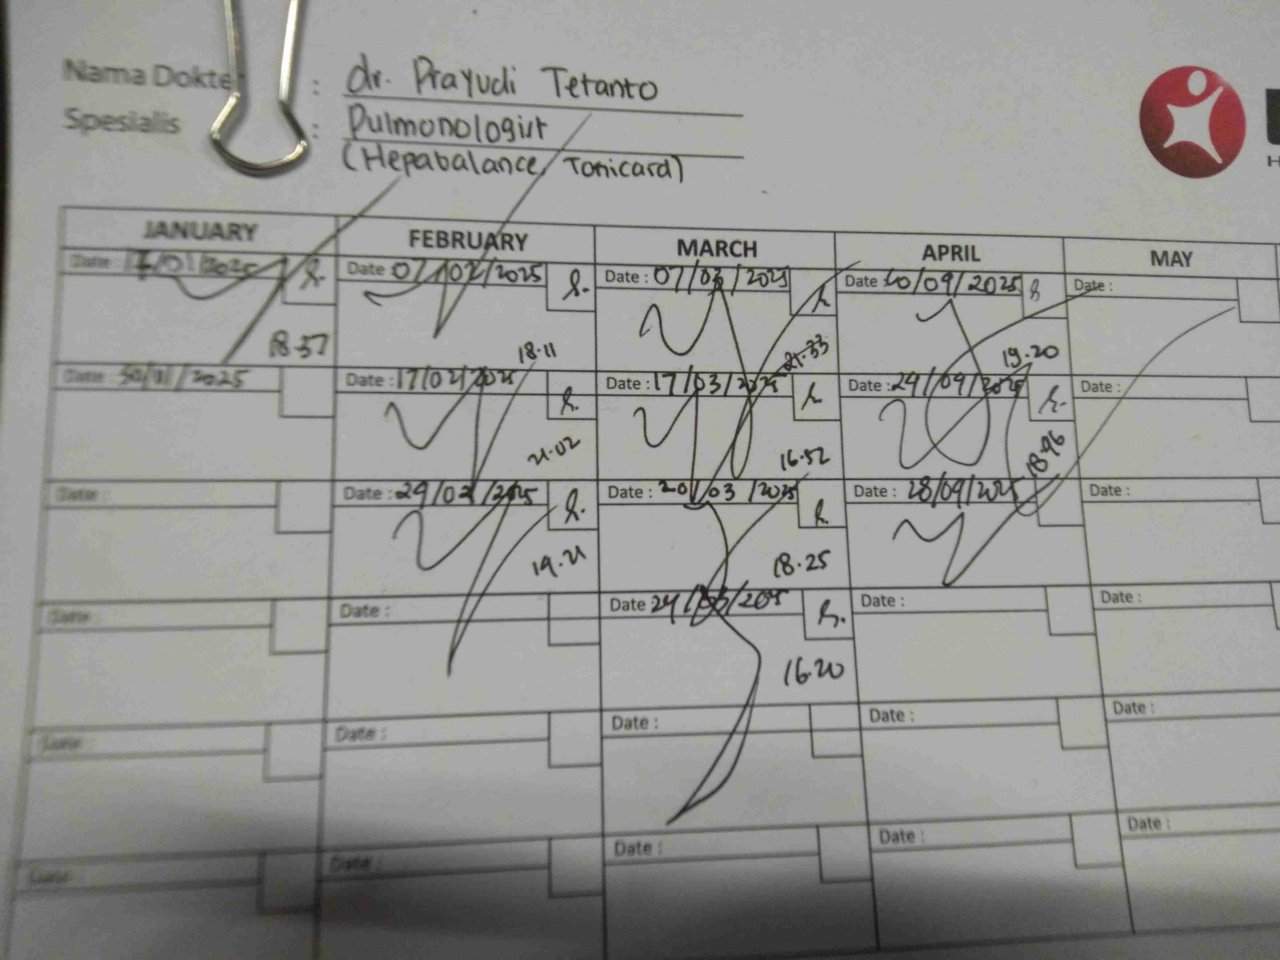 Nama Dokte : dr. Prayudi Tetanto
Spesialis : Pulmonologist
(Hepabalance, Tonicard)
JANUARY FEBRUARY MARCH APRIL MAY
Date : /01/2025 Date 07/02/2025 Date : 07/03/2025 Date 10/04/2025 Date :
18.37 18.11 21.33 19.20
Date : 30/01/2025 Date : 17/02/2025 Date : 17/03/2025 Date : 24/04/2025 Date :
21.02 16.52 18.46
Date : Date : 24/02/2025 Date : 20/03/2025 Date : 28/04/2025 Date :
19.21 18.25
Date : Date : Date 24/03/2025 Date : Date :
16.20
Date : Date : Date : Date : Date :
Date : Date : Date : Date : Date :